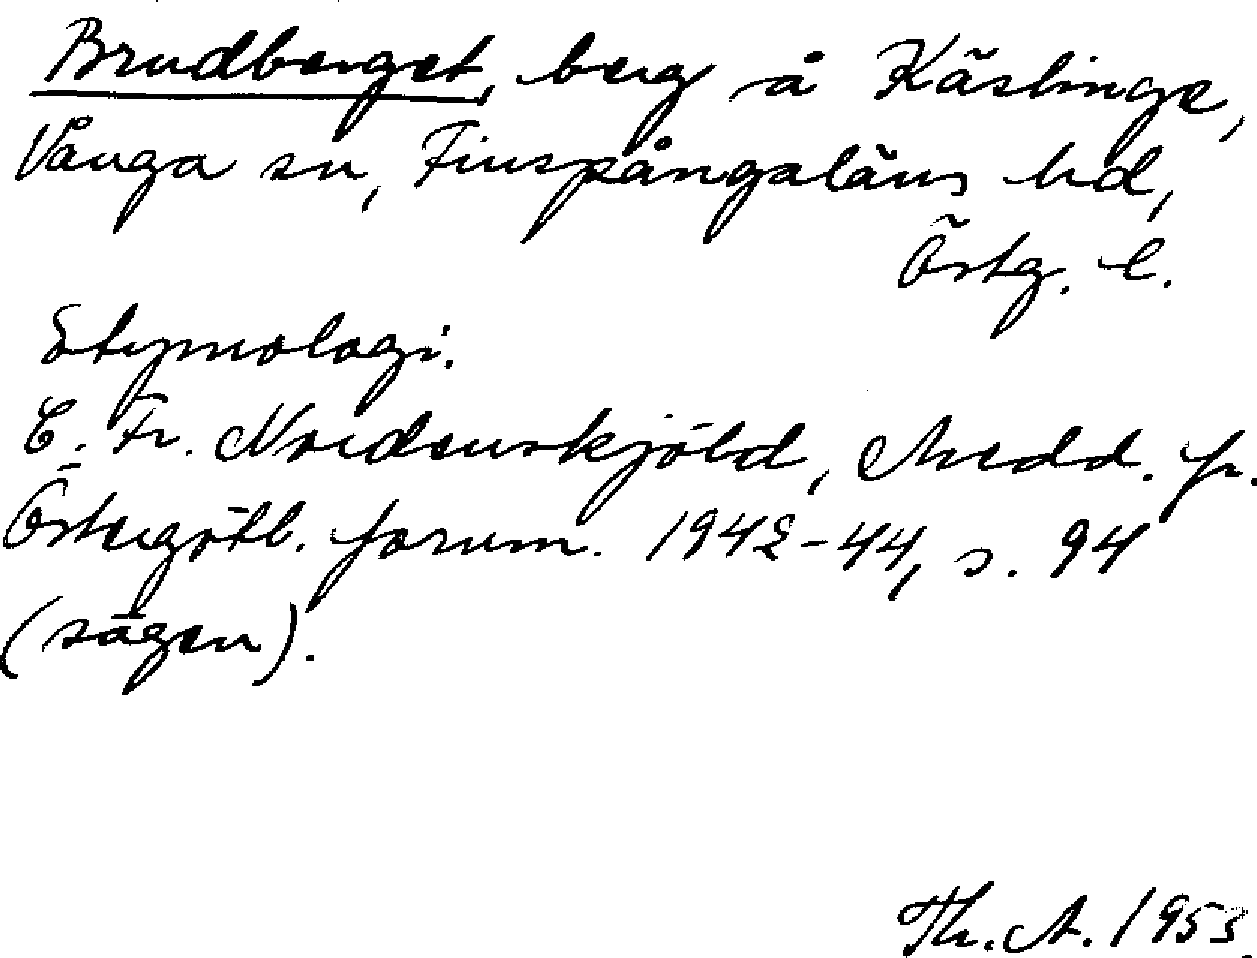 Brudberget, berg å Käslinge,
Vånga sn, Finspångaläns hd,
Östg. l.
Etymologi.
C. Fr. Nordenskjöld, Medd. fr.
Östergötl. fornm. 1942-44, s. 94
(sägen).
Th. A. 1953.